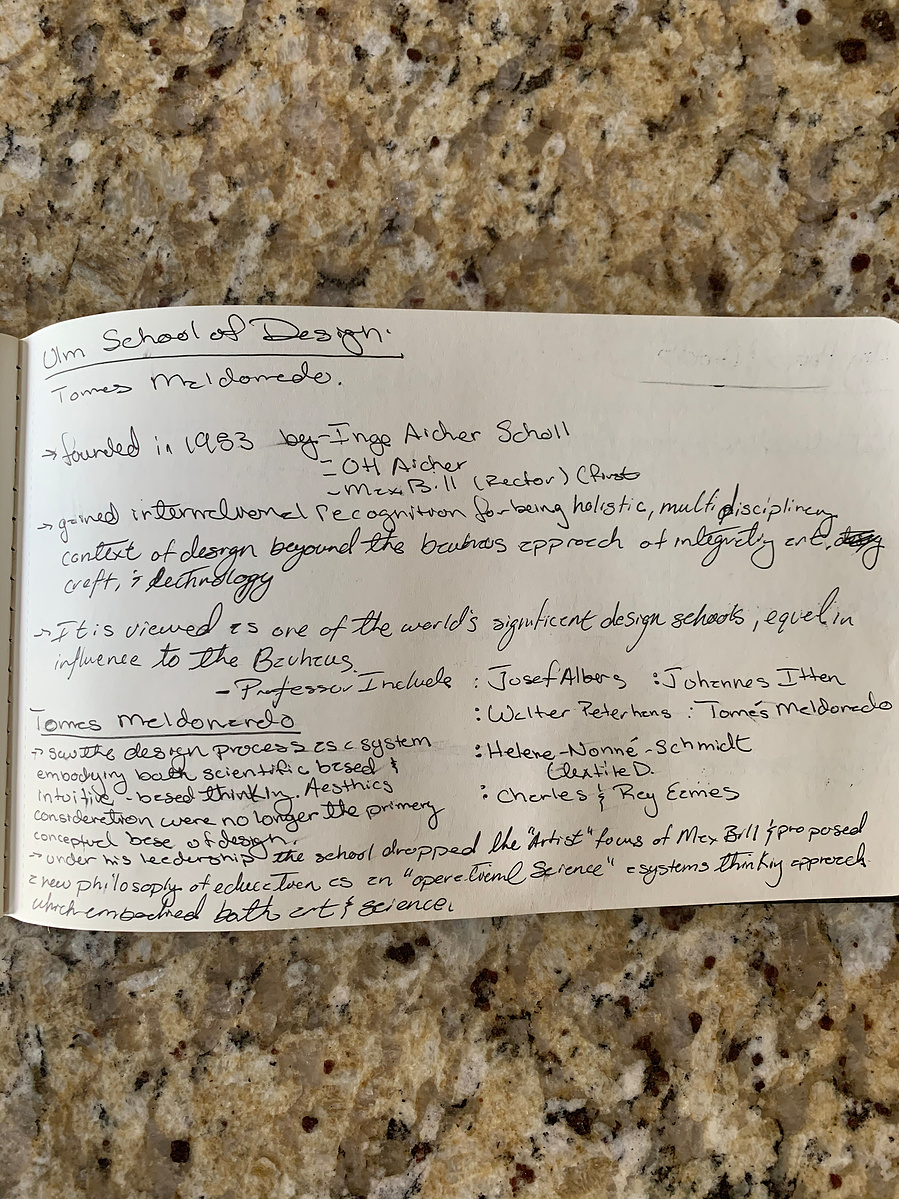 Ulm School of Design.
Tomas Maldonado.
→ founded in 1953 by - Inge Aicher Scholl
- Otl Aicher
- Max Bill (Rector) (First
→ gained international recognition for being holistic, multidisciplinary
context of design beyound the bauhaus approach of integrating art,
craft, & technology
→ It is viewed as one of the world's significant design schools, equal in
influence to the Bauhaus
- Professor Include : Josef Albers : Johannes Itten
: Walter Peterhans : Tomás Maldonado
: Helene-Nonné-Schmidt
(textile D.
: Charles & Ray Eames
Tomas Maldonardo
→ saw the design process as a system
embodying both scientific based &
intuitive-based thinking. Aesthics
consideration were no longer the primary
conceptual base of design.
→ under his leadership the school dropped the "Artist" focus of Max Bill & proposed
a new philosoply of education as an "operational Science" a systems thinking approach
which embodied both art & science.